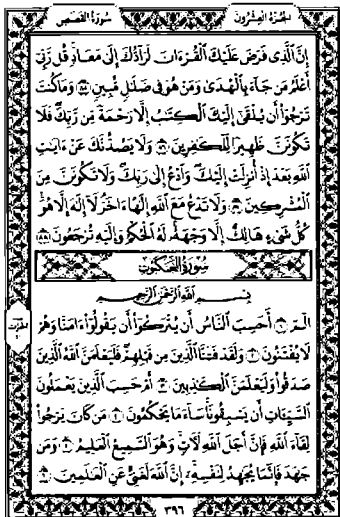 الجزء العشرون سورة القصص
إن الذي فرض عليك القرءان لرادك إلى معاد قل ربي
أعلم من جاء بالهدى ومن هو في ضلل مبين ٨٥ وما كنت
ترجوا أن يلقى إليك الكتب إلا رحمة من ربك فلا
تكونن ظهيرا للكفرين ٨٦ ولا يصدنك عن ءايت
الله بعد إذ أنزلت إليك وادع إلى ربك ولا تكونن من
المشركين ٨٧ ولا تدع مع الله إلها ءاخر لا إله إلا هو
كل شيء هالك إلا وجهه له الحكم وإليه ترجعون ٨٨
سورة العنكبوت
بسم الله الرحمن الرحيم
الم ١ أحسب الناس أن يتركوا أن يقولوا ءامنا وهم
لا يفتنون ٢ ولقد فتنا الذين من قبلهم فليعلمن الله الذين
صدقوا وليعلمن الكذبين ٣ أم حسب الذين يعملون
السيئات أن يسبقونا ساء ما يحكمون ٤ من كان يرجوا
لقاء الله فإن أجل الله لآت وهو السميع العليم ٥ ومن
جهد فإنما يجهد لنفسه إن الله لغني عن العلمين ٦
٣٩٦